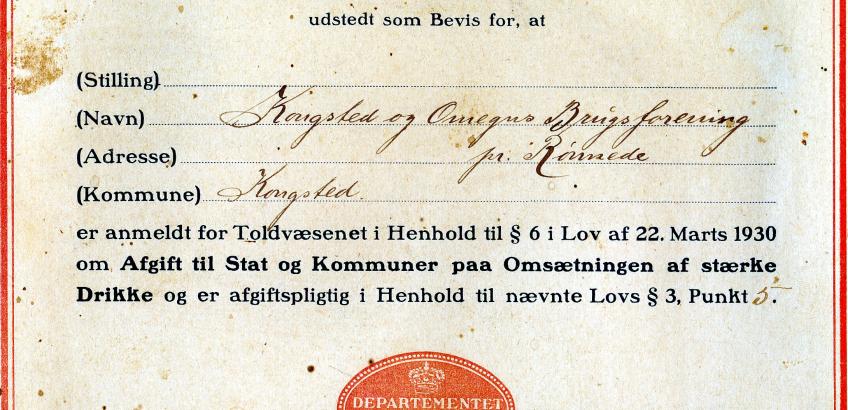 udstedt som Bevis for, at
(Stilling)
(Navn) Kongsted og Omegns Brugsforening
(Adresse) pr. Rønnede
(Kommune) Kongsted.
er anmeldt for Toldvæsenet i Henhold til § 6 i Lov af 22. Marts 1930
om Afgift til Stat og Kommuner paa Omsætningen af stærke
Drikke og er afgiftspligtig i Henhold til nævnte Lovs § 3, Punkt 5.
DEPARTEMENTET